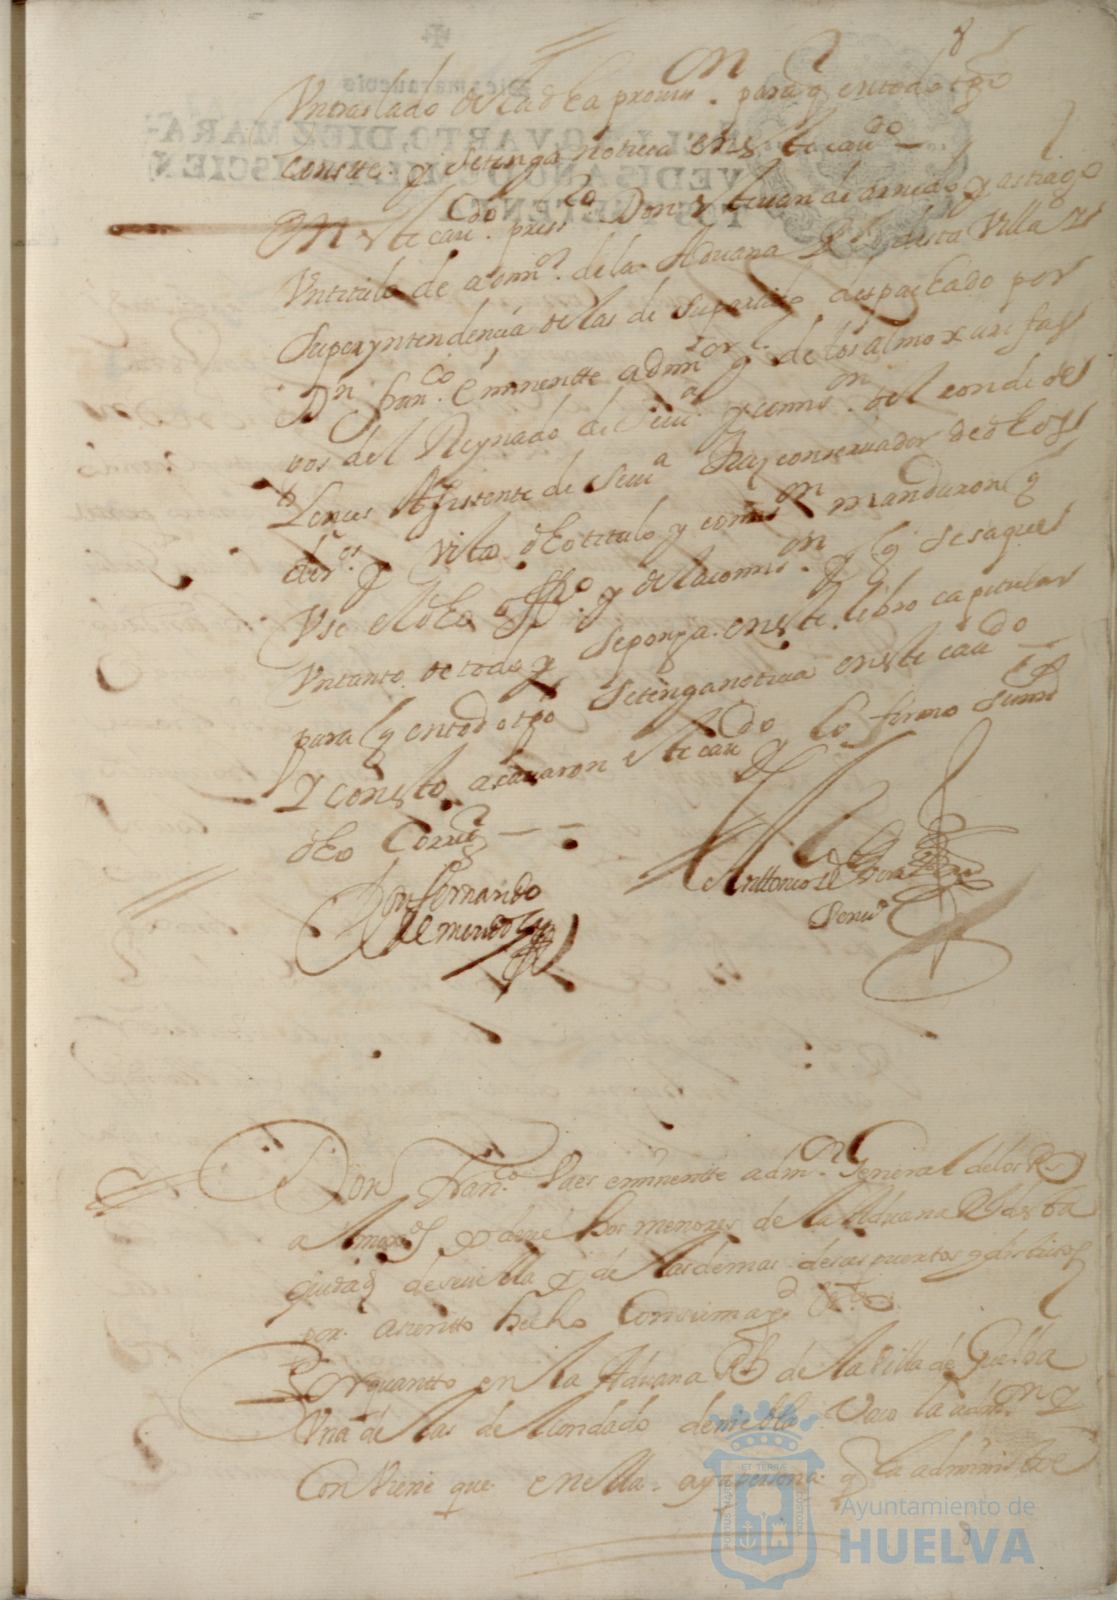 8
Un traslado de la dha provin.on para q en todo tpo
conste y se tenga noticia en este cau.do —
En este cau.do press.to Don estevan de arnedo y astiago
Un titulo de admor. de la Aduana Rl desta Villa y
Superyntendencia de las de su partido despachado por
Dn fran.co eminentte adm.or g.l de los almoxarifas
gos del Reynado de Seui.a y comis.on del conde de
Lences Assistente de Seui.a Juez conservador de dhos
der.os y visto dho titulo y comis.on mandaron q
Use el dho offi.o y de la comis.on y q se saque
Un tanto de todo y se ponga en este libro capitular
para q en todo tpo se tenga noticia en este cau.do —
Y con esto acauaron este cau.do y lo firmo su md
dho Corre.or — —
Don fernando
de mendoza
Anttonio de
Don Fran.co Baes eminentte adm.or General de los Rs
almox.os y demas Dos menores de la Aduana Rl desta
ciudad de seuilla y de las demas de sus puertos y distritos
por asientto hecho Con su mag.d
Por quantto en la Aduana Rl de la Villa de Guelba
Una de las del Condado de niebla Vaco la adm.on y
Conviene que en ella aya persona q la administre
8
Ayuntamiento de
HUELVA